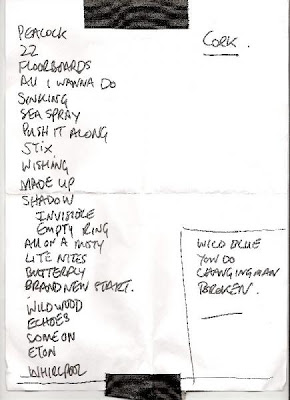 PEACOCK
22
FLOORBOARDS
All I WANNA DO
SINKING
SEA SPRAY
PUSH IT ALONG
STIX
WISHING
MADE UP
SHADOW
INVISIBLE
EMPTY RING
All ON A MISTY
LITE NITES
BUTTERFLY
BRAND NEW START.
WILDWOOD
ECHOES
SOME ON
ETON
WHIRLPOOL
CORK.
WILD BLUE
YOU DO
CHANGINGMAN
BROKEN.